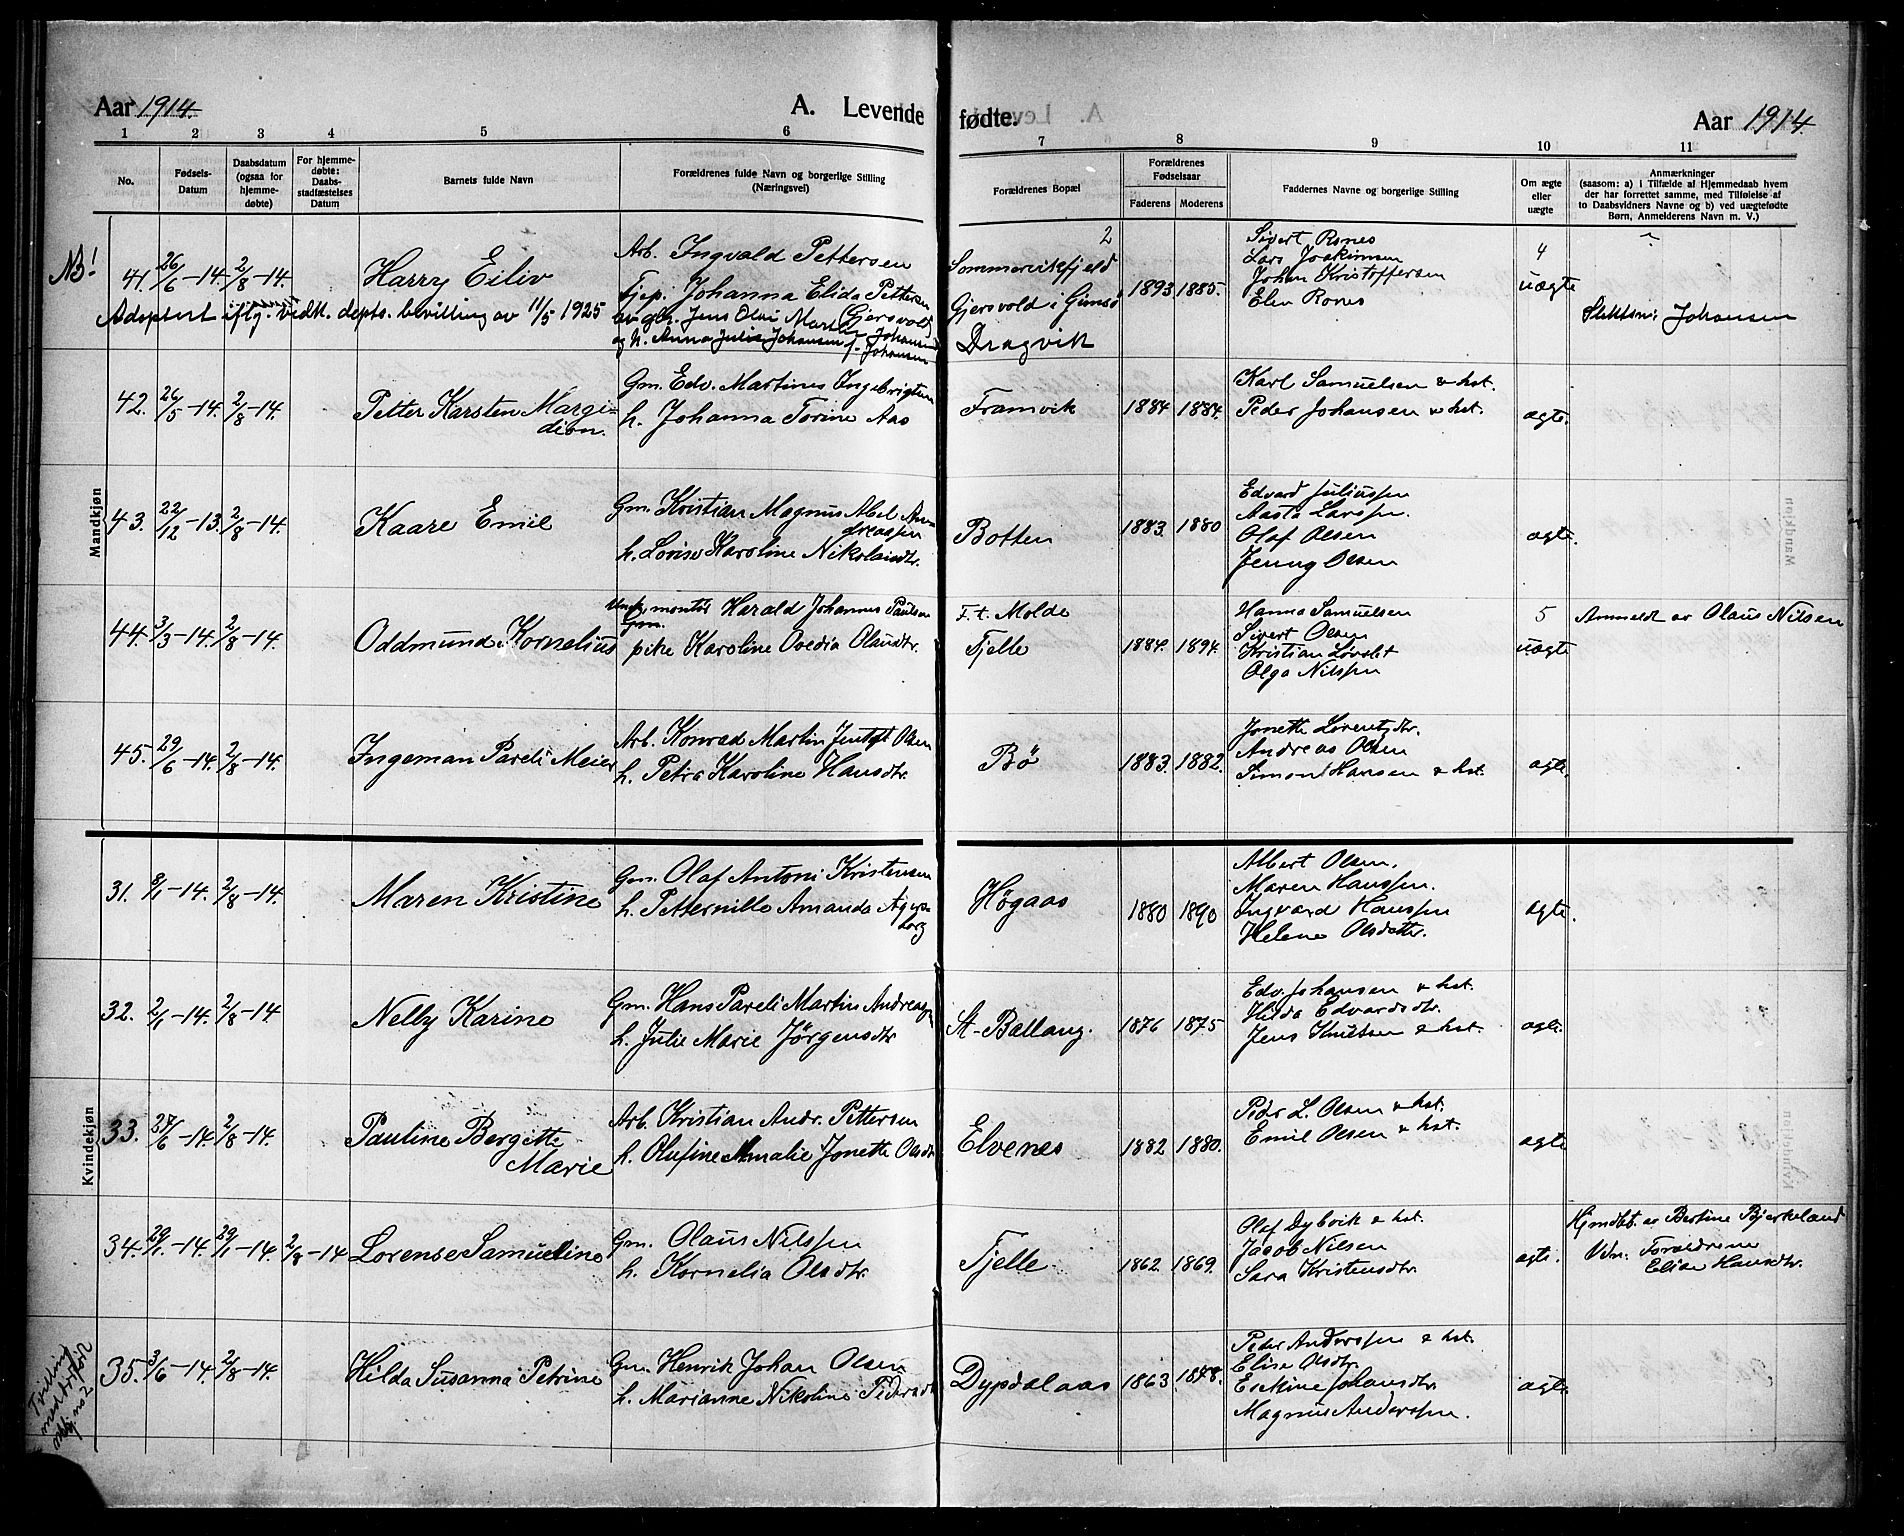 Aar 1914. A. Levende fødte. Aar 1914
1 2 3 4 5 6 7 8 9 10 11
No.
Fødsels-Datum
Daabsdatum (ogsaa for hjemme-døbte)
For hjemme-døbte: Daabs-stadfæstelses Datum
Barnets fulde Navn
Forældrenes fulde Navn og borgerlige Stilling (Næringsvei)
Forældrenes Bopæl
Forældrenes Fødselsaar
Faderens Moderens
Faddernes Navne og borgerlige Stilling
Om ægte eller uægte
Anmærkninger
(saasom: a) i Tilfælde af Hjemmedaab hvem
der har forrettet samme, med Tilføielse af
to Daabsvidners Navne og b) ved uægtefødte
Børn, Anmelderens Navn m. V.)
Mandkjøn
NB!
41. 26/6-14. 2/8-14. Harry Eiliv
Arb. Ingvald Pettersen
Tjep. Johanna Elida Pettersen
Gjersvold
2
Sommervikfjeld
Gjersvold i Gimsø
1893 1885.
Sivert Rones
Lars Joakimsen
Johan Kristoffersen
Elen Rones
4
uægte
Adoptert iflg. vedk. depts. bevilling av 11/5 1925
av gbr. Jens Olai Martin Johansen
og h. Anna Julie Johansen f. Johansen
Dragvik
Slektsn: Johansen
42. 26/5-14. 2/8-14. Petter Karsten Margi-
dion.
Gm. Edv. Martines Ingebrigtsen
h. Johanna Torine Aas
Framvik
1884 1884.
Karl Samuelsen & hst.
Peder Johansen & hst.
ægte.
43. 22/12-13. 2/8-14. Kaare Emil
Gm. Kristian Magnus Abel An-
dreassen
h. Lovise Karoline Nikolaidtr.
Botten
1883. 1880
Edvard Juliussen
Aasta Larssen.
Olaf Olsen
Jenny Olsen
ægte.
44. 3/3-14. 2/8-14. Oddmund Kornelius
Ungk. montør Harald Johannes Paulsen
Gm.
pike Karoline Ovedia Olausdtr.
F.t. Molde
Fjelle
1884. 1894.
Hanna Samuelsen
Sivert Olsen
Kristian Løvslet
Olga Nilssen
5
uægte
Anmeldt av Olaus Nilsen
45. 29/6-14. 2/8-14. Ingeman Pareli Meier
Arb. Konrad Martin Jentoft Olsen
h. Petra Karoline Hansdtr.
Bø
1883. 1882.
Jonette Lorentzdtr.
Andreas Olsen
Simon Hansen & hst.
ægte.
Kvindekjøn
31. 8/1-14. 2/8-14. Maren Kristine
Gm. Olaf Antoni Kristensen
h. Petternille Amanda Ager-
borg
Høgaas
1880 1890
Albert Olsen.
Maren Hanssen.
Ingvard Hanssen
Helene Olsdatter.
ægte.
32. 2/1-14. 2/8-14 Nelly Karine
Gm. Hans Pareli Martin Andreassen
h. Julie Marie Jørgensdtr
St-Ballang.
1876 1875
Edv. Johansen & hst.
Hilda Edvardsdtr.
Jens Knutsen & hst.
ægte.
33. 27/6-14. 2/8-14. Pauline Bergitte
Marie
Arb. Kristian Andr. Pettersen
h. Olufine Amalie Jonette Olsdtr
Elvenes
1882 1880.
Peder L. Olsen & hst.
Emil Olsen & hst.
ægte
34. 29/1-14. 29/1-14. 2/8-14 Lorense Samueline
Gm. Olaus Nilssen
h. Kornelia Olsdtr.
Fjelle
1862. 1869.
Olaf Dybvik & hst.
Jacob Nilsen
Sara Kristensdtr.
ægte.
Hjmdbt. av Bertine Bjerkeland
Vdn: Forældrene
Elise Hansdtr.
35. 3/6-14. 2/8-14. Hilda Susanna Petrine
Gm. Henrik Johan Olsen
h. Marianne Nikoline Pedersdtr
Dypdalaas
1863 1878.
Peder Anderssen & hst.
Elise Olsdtr.
Erikine Johansdtr.
Magnus Anderssen.
ægte
Tvilling
med dødfødt
no 2